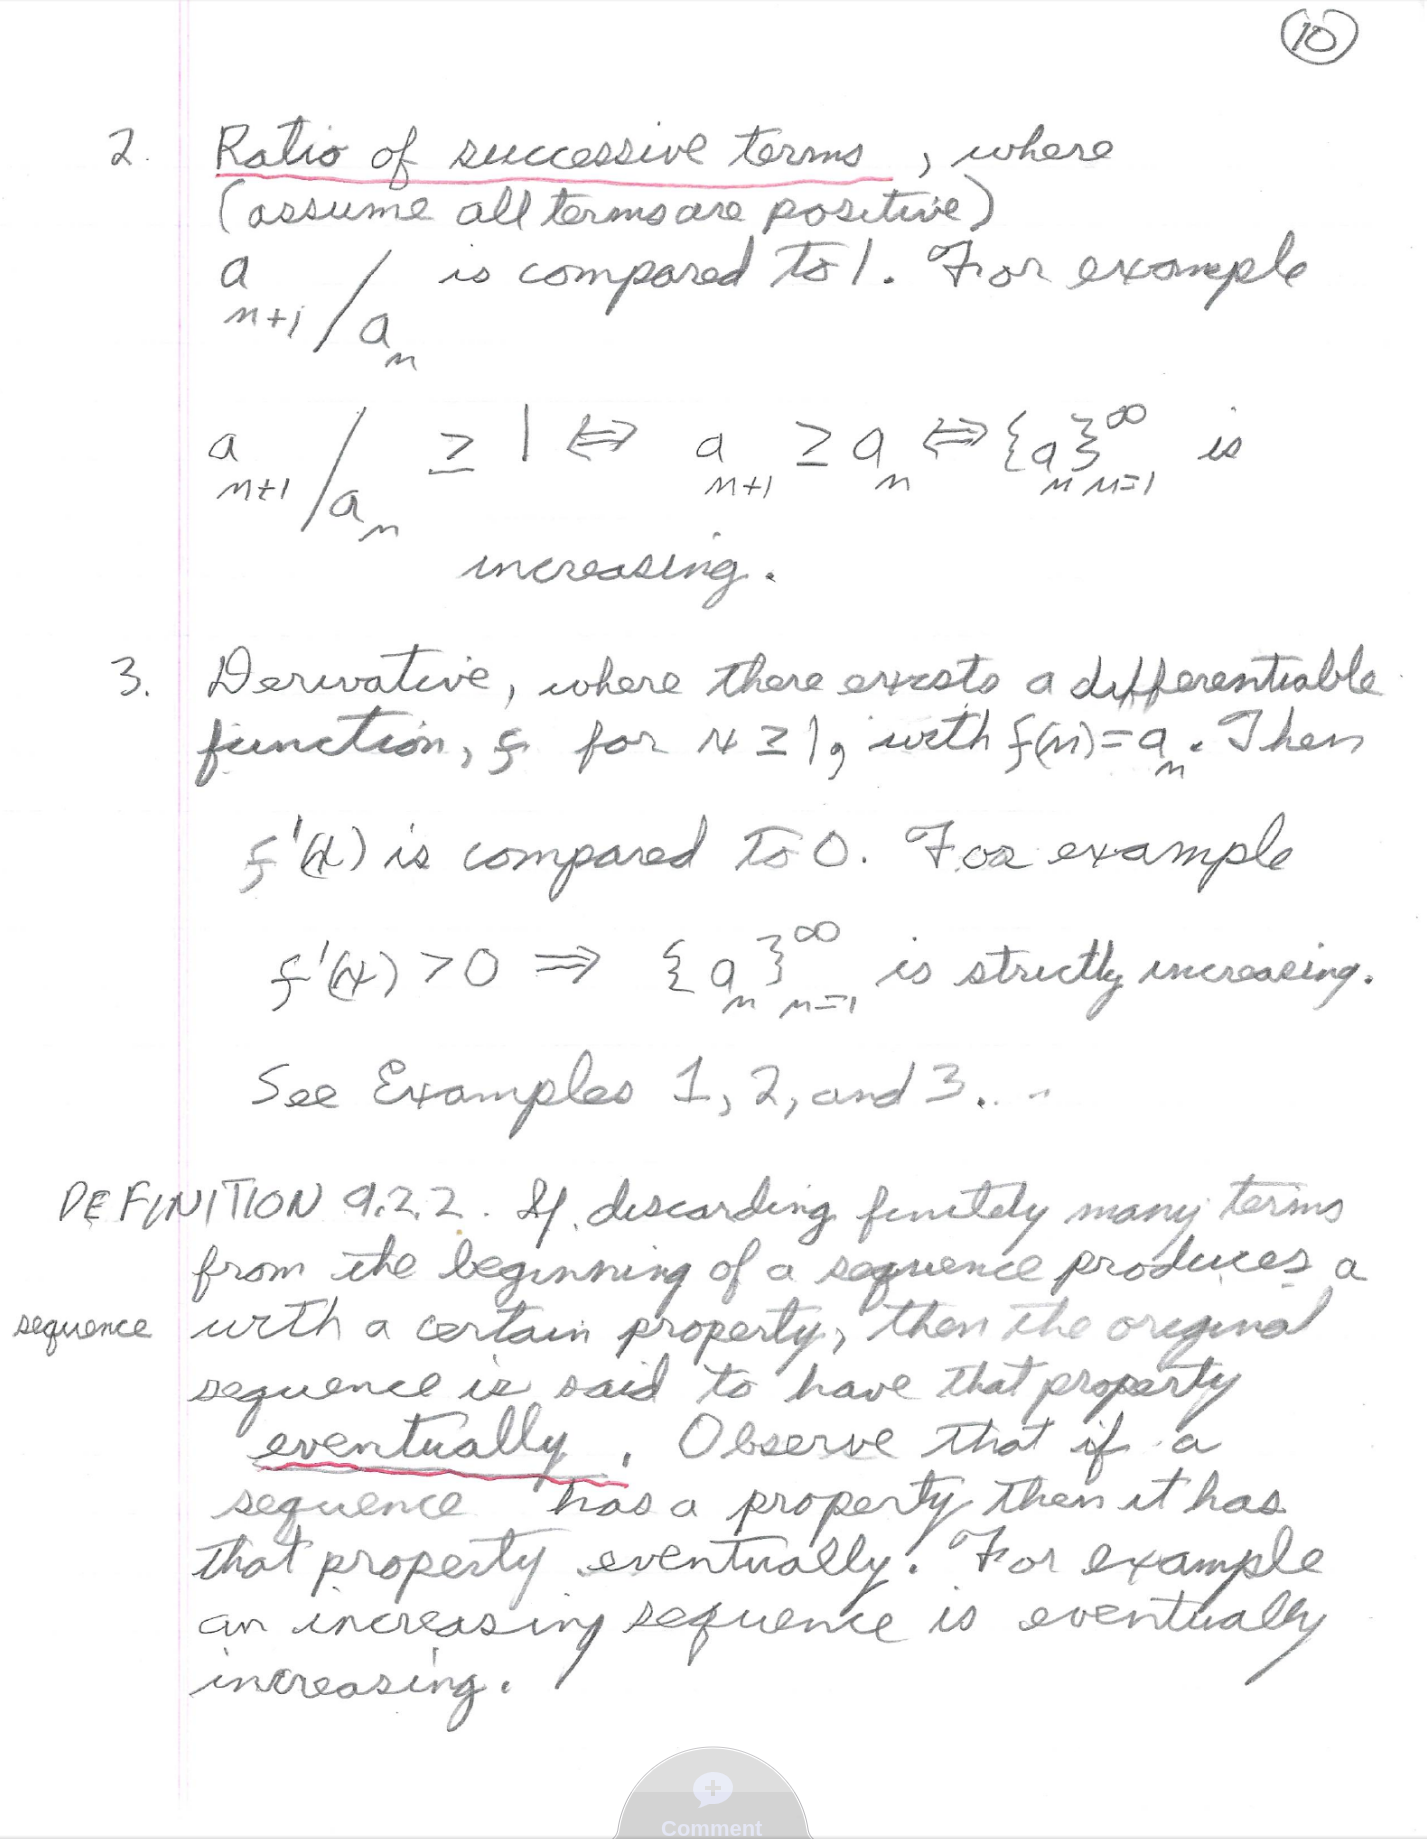 10
2. Ratio of successive terms, where
(assume all terms are positive)
a_{n+1}/a_n is compared to 1. For example
a_{n+1}/a_n ≥ 1 ⇔ a_{n+1} ≥ a_n ⇔ {a_n}_{n=1}^∞ is
increasing.
3. Derivative, where there exists a differentiable
function, f for x ≥ 1, with f(n) = a_n. Then
f'(x) is compared to 0. For example
f'(x) > 0 ⇒ {a_n}_{n=1}^∞ is strictly increasing.
See Examples 1, 2, and 3...
DEFINITION 9.2.2. If discarding finitely many terms
from the beginning of a sequence produces a
sequence with a certain property, then the original
sequence is said to have that property
eventually. Observe that if a
sequence has a property then it has
that property eventually. For example
an increasing sequence is eventually
increasing.
Comment